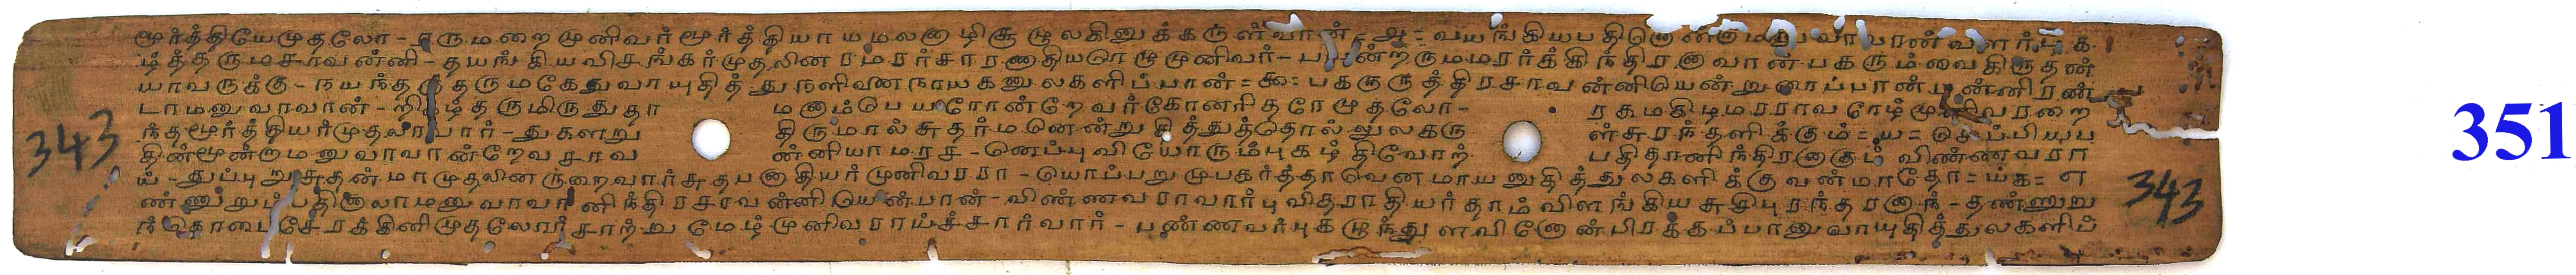 மூர்த்தியேமுதலோ - ருமறை முனிவர் மூர்த்தியாயமலனாழிசூழுலகினுக்கருள்வான் = அ = வயங்கியபதி
த்தருமசாவன்னி - தயங்கியவிசங்கர்முதலினரமரர்சாரணாதியடாமுனிவர் - ன்றருமமரர்க்கிந்திரனாவான் பகரும்வைகிருதன்
யாவருக்கு - நயந்த தருமகேதுவாயுதித்து நளிவணநாயகனுலகளிப்பான் = ௯ = பகருருத்திரசாவன்னியென்றுரைப்பான்
டாமனுவாவான் - றிகழ்தருமிருதுதா மனாம்பெயரோன்றேவர்கோனரிதரோமுதலோ -
ந்தமூர்த்தியர்முதலாவார் - துகளறு திருமால்சுதர்மனென்றுதித்துத்தொல்லுலகரு ள்சுரந்தளிக்கும் = ௰ =
தின்மூன்றாமனுவாவான்றேவசாவ ன்னியாமரச - னெப்புவியோரும்புகழ்திவோற் பதிதானிந்திரனாகும் விண்ணவரா
ய் - துப்புறுசுதன்மாமுதலினருறைவார்சுதபனாதியர்முனிவரரா - யொப்பறுமுபகர்த்தாவெனமாயனுதித்துலகளிக்குவன்மாதோ = ௰௧ = எ
ண்ணுறும்பதினாலாமனுவாவானிந்திரசாவன்னியென்பான் - விண்ணவராவார்புவிதராதியர்தாம் விளங்கியசுசிபுரந்தரனாந் - தண்ணுறு
சேரக்கினிமுதலோர்சாற்றுமேழ்முனிவராய்ச்சார்வார் - பண்ணவர்புகழுந்துளவினோன்பிரக்கப்பானுவாயுதித்துலகளிப்
343
343
351